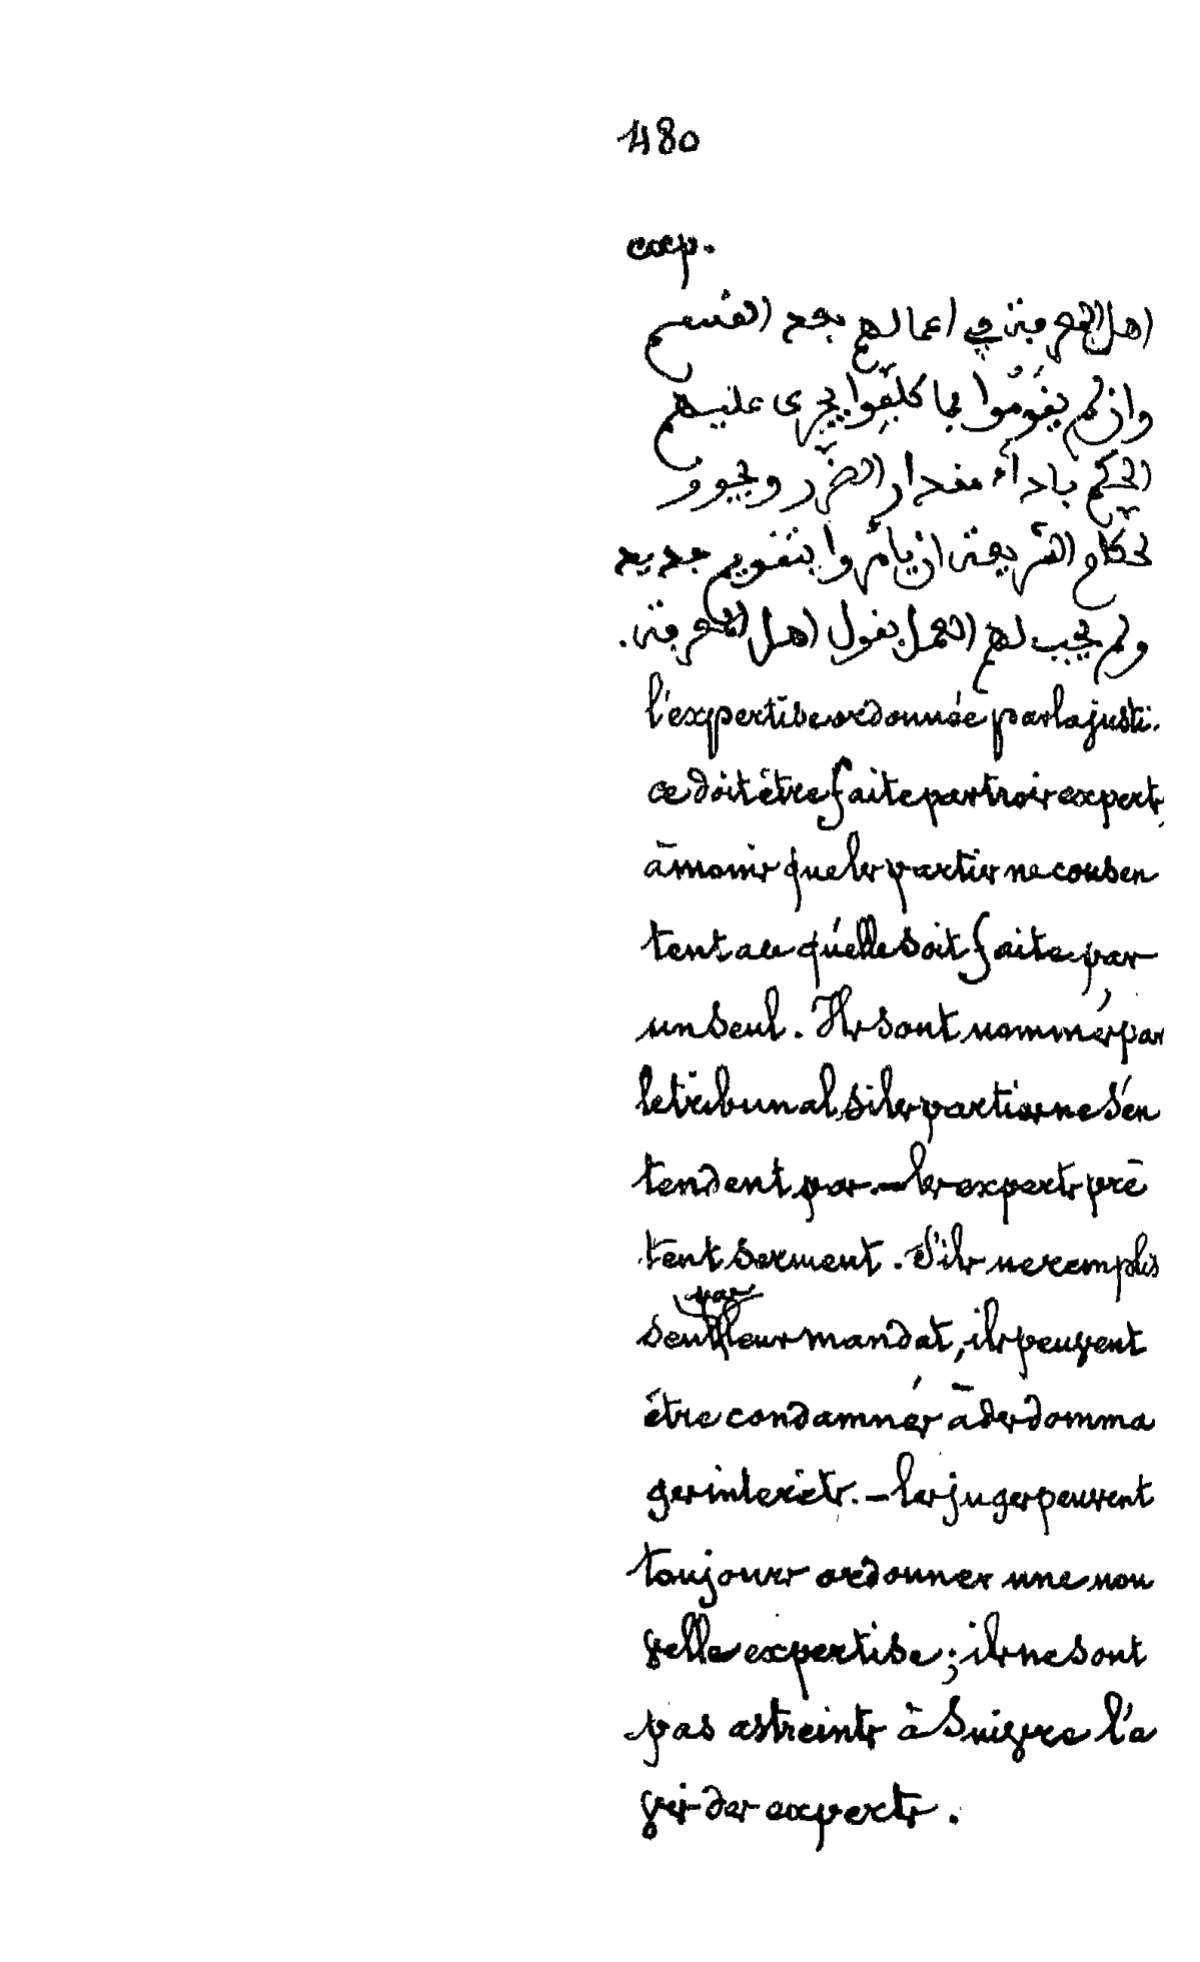 480
exp.
اهل المعرفة في اعمالهم بعد القسم
وان لم يقوموا بما كلفوا يجرى عليهم
الحكم باداء مقدار الضرر ويجوز
لحكام الشريعة ان يامروا بتقويم جديد
ولم يجب لهم العمل بقول اهل المعرفة.
l'expertise ordonnée par la justi-
ce doit être faite par trois experts,
à moins que les parties ne consen
tent a ce qu'elle soit faite par
un seul. Ils sont nommés par
le tribunal, si les parties ne s'en
tendent pas. — les experts prê
tent serment. S'ils ne remplis
sent pas leur mandat, ils peuvent
être condamnés à des domma
ges intérêts. — les juges peuvent
toujours ordonner une nou
velle expertise; ils ne sont
pas astreints à suivre l'a
vis des experts.